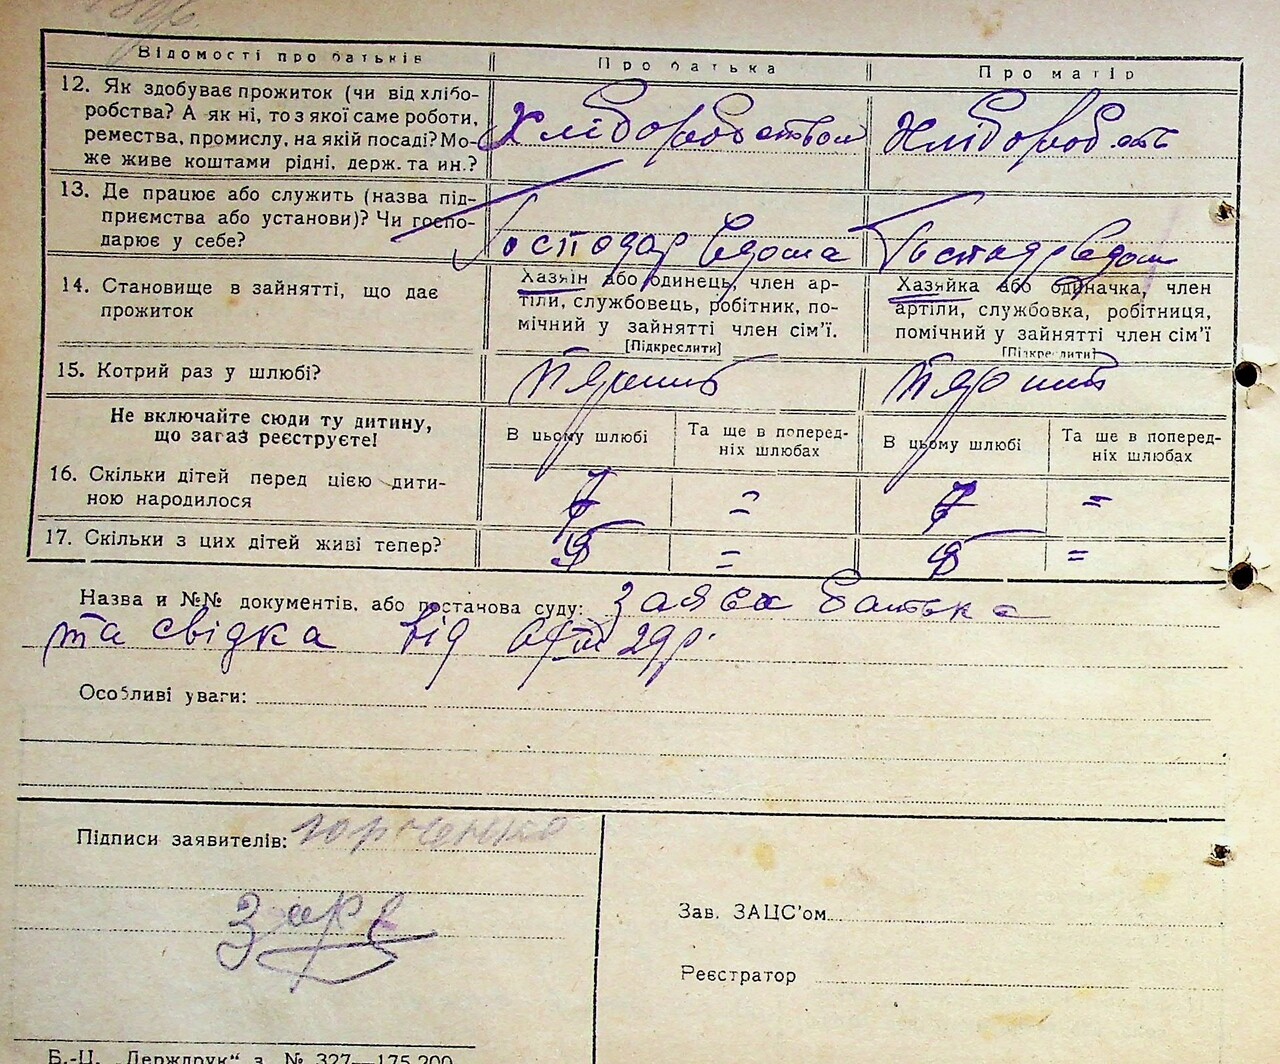 Відомості про батьків
Про батька
Про матір
12. Як здобуває прожиток (чи від хлібо-
робства? А як ні, то з якої саме роботи,
ремества, промислу, на якій посаді? Мо-
же живе коштами рідні, держ. та ин.?
Хліборобством
Хлібороб.
13. Де працює або служить (назва під-
приємства або установи)? Чи госпо-
дарює у себе?
Господар вдома
14. Становище в зайнятті, що дає
прожиток
Хазяїн або одинець, член ар-
тіли, службовець, робітник, по-
мічний у зайнятті член сім'ї.
[Підкреслити]
Хазяйка або одиначка, член
артіли, службовка, робітниця,
помічний у зайнятті член сім'ї
[Підкреслити]
15. Котрий раз у шлюбі?
Не включайте сюди ту дитину,
що загаз реєструєте!
В цьому шлюбі
Та ще в поперед-
ніх шлюбах
В цьому шлюбі
Та ще в поперед-
ніх шлюбах
16. Скільки дітей перед цією дити-
ною народилося
7 = 7 =
17. Скільки з цих дітей живі тепер?
= =
Назва и №№ документів, або постанова суду: заява батька
та свідка від
Особливі уваги:
Підписи заявителів: горченко
Зав. ЗАЦС'ом
Реєстратор
Б.-Ц. „Держдрук“ з. № 327—175.200